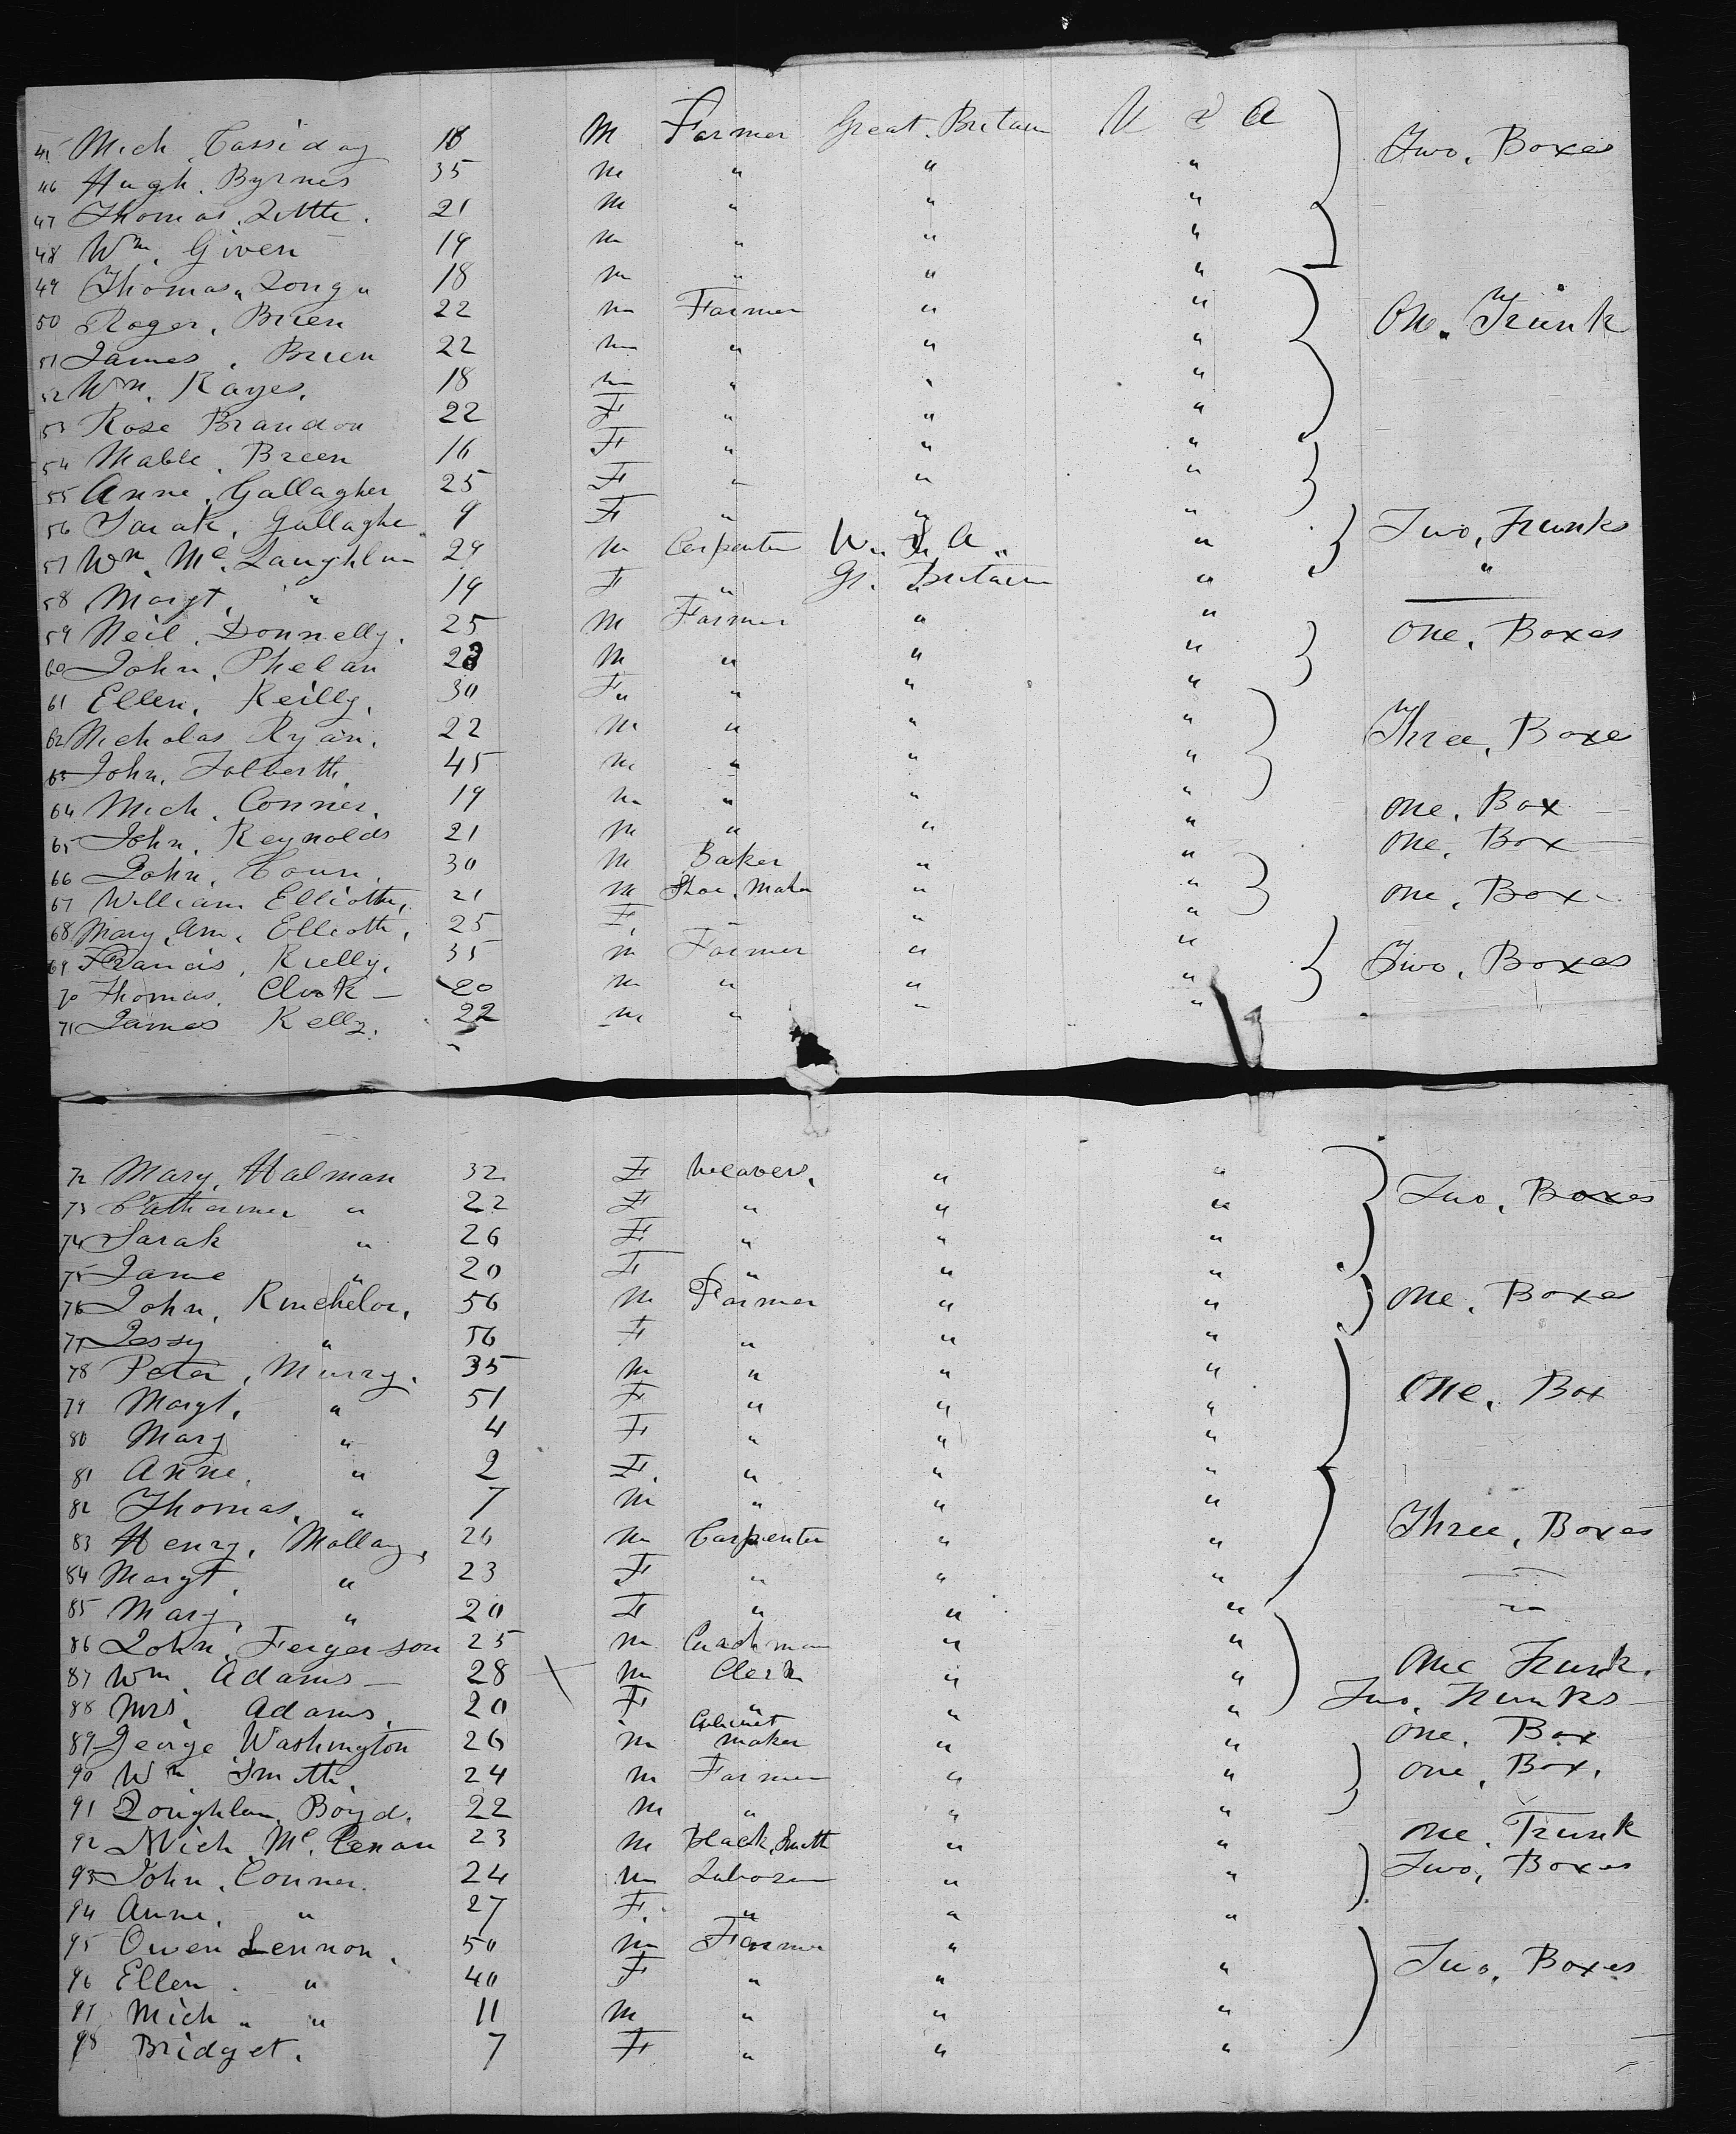 45 Mich Cassiday 18 M Farmer Great. Britain U S A Two, Boxes
46 Hugh. Byrnes 35 M " " "
47 Thomas. Little. 21 M " " "
48 Wm. Given 19 M " " "
49 Thomas " Long " 18 M " " "
50 Roger. Brien 22 M Farmer " " One. Trunk
51 James. Brien 22 M " " "
52 Wm. Kayes. 18 M " " "
53 Rose Brandon 22 F " " "
54 Mable. Breen 16 F " " "
55 Anne. Gallagher 25 F " " "
56 Sarah, Gallaghe 9 F " " " Two, Trunks
57 Wm. Mc. Laughlin 29 M Carpenter U. S. A " " "
58 Margt. " 19 F " Gt. Britain "
59 Neil. Donnelly. 25 M Farmer " " One, Boxes
60 John, Phelan 23 M " " "
61 Ellen, Reilly. 30 F " " " "
62 Nicholas Ryan. 22 M " " " Three, Boxe
63 John. Tolberth 45 M " " "
64 Mich. Conner. 19 M " " " One, Box
65 John. Reynolds 21 M " " " One, Box
66 John. 30 M Baker " "
67 William Elliotte. 21 M Shoe. Maker " " One, Box
68 Mary, Ann. Elliotte. 25 F. " " "
69 Francis, Rielly. 35 M Farmer " " Two, Boxes
70 Thomas. 20 M " " "
71 James Kelly. 22 M " " "
72 Mary, Halman 32 F Weavers, " " Two, Boxes
73 Catharine " 22 F " " "
74 Sarah " 26 F " " "
75 Jame " 20 F " " "
76 John, 56 M Farmer " " One, Boxes
77 Jessy " 56 F " " "
78 Peter, Murry. 35 M " " "
79 Margt, " 51 F " " " One, Box
80 Mary " 4 F " " "
81 Anne. " 2 F. " " "
82 Thomas. " 7 M " " "
83 Henry, Mollay, 26 M Carpenter " " Three, Boxes
84 Margt. " 23 F " " "
85 Mary " 20 F " " " "
86 John, Fergerson 25 M Coachman " "
87 Wm. Adams — 28 M Clerk " " One Trunk.
88 Mrs. Adams. 20 F " " " Two, Trunks
89 George Washington 26 M Cabinet maker " " One. Box
90 Wm. Smith. 24 M Farmer " " One, Box.
91 Loughlan, Boyd. 22 M " " "
92 Mich. Mc. 23 M Black, Smith " " One. Trunk
93 John, Conner. 24 M Laborer " " Two, Boxes
94 Anne, " 27 F. " " "
95 Owen Lennon. 50 M Farmer " "
96 Ellen. " 40 F " " " Two, Boxes
97 Mich " " 11 M " " "
98 Bridget. 7 F " " "